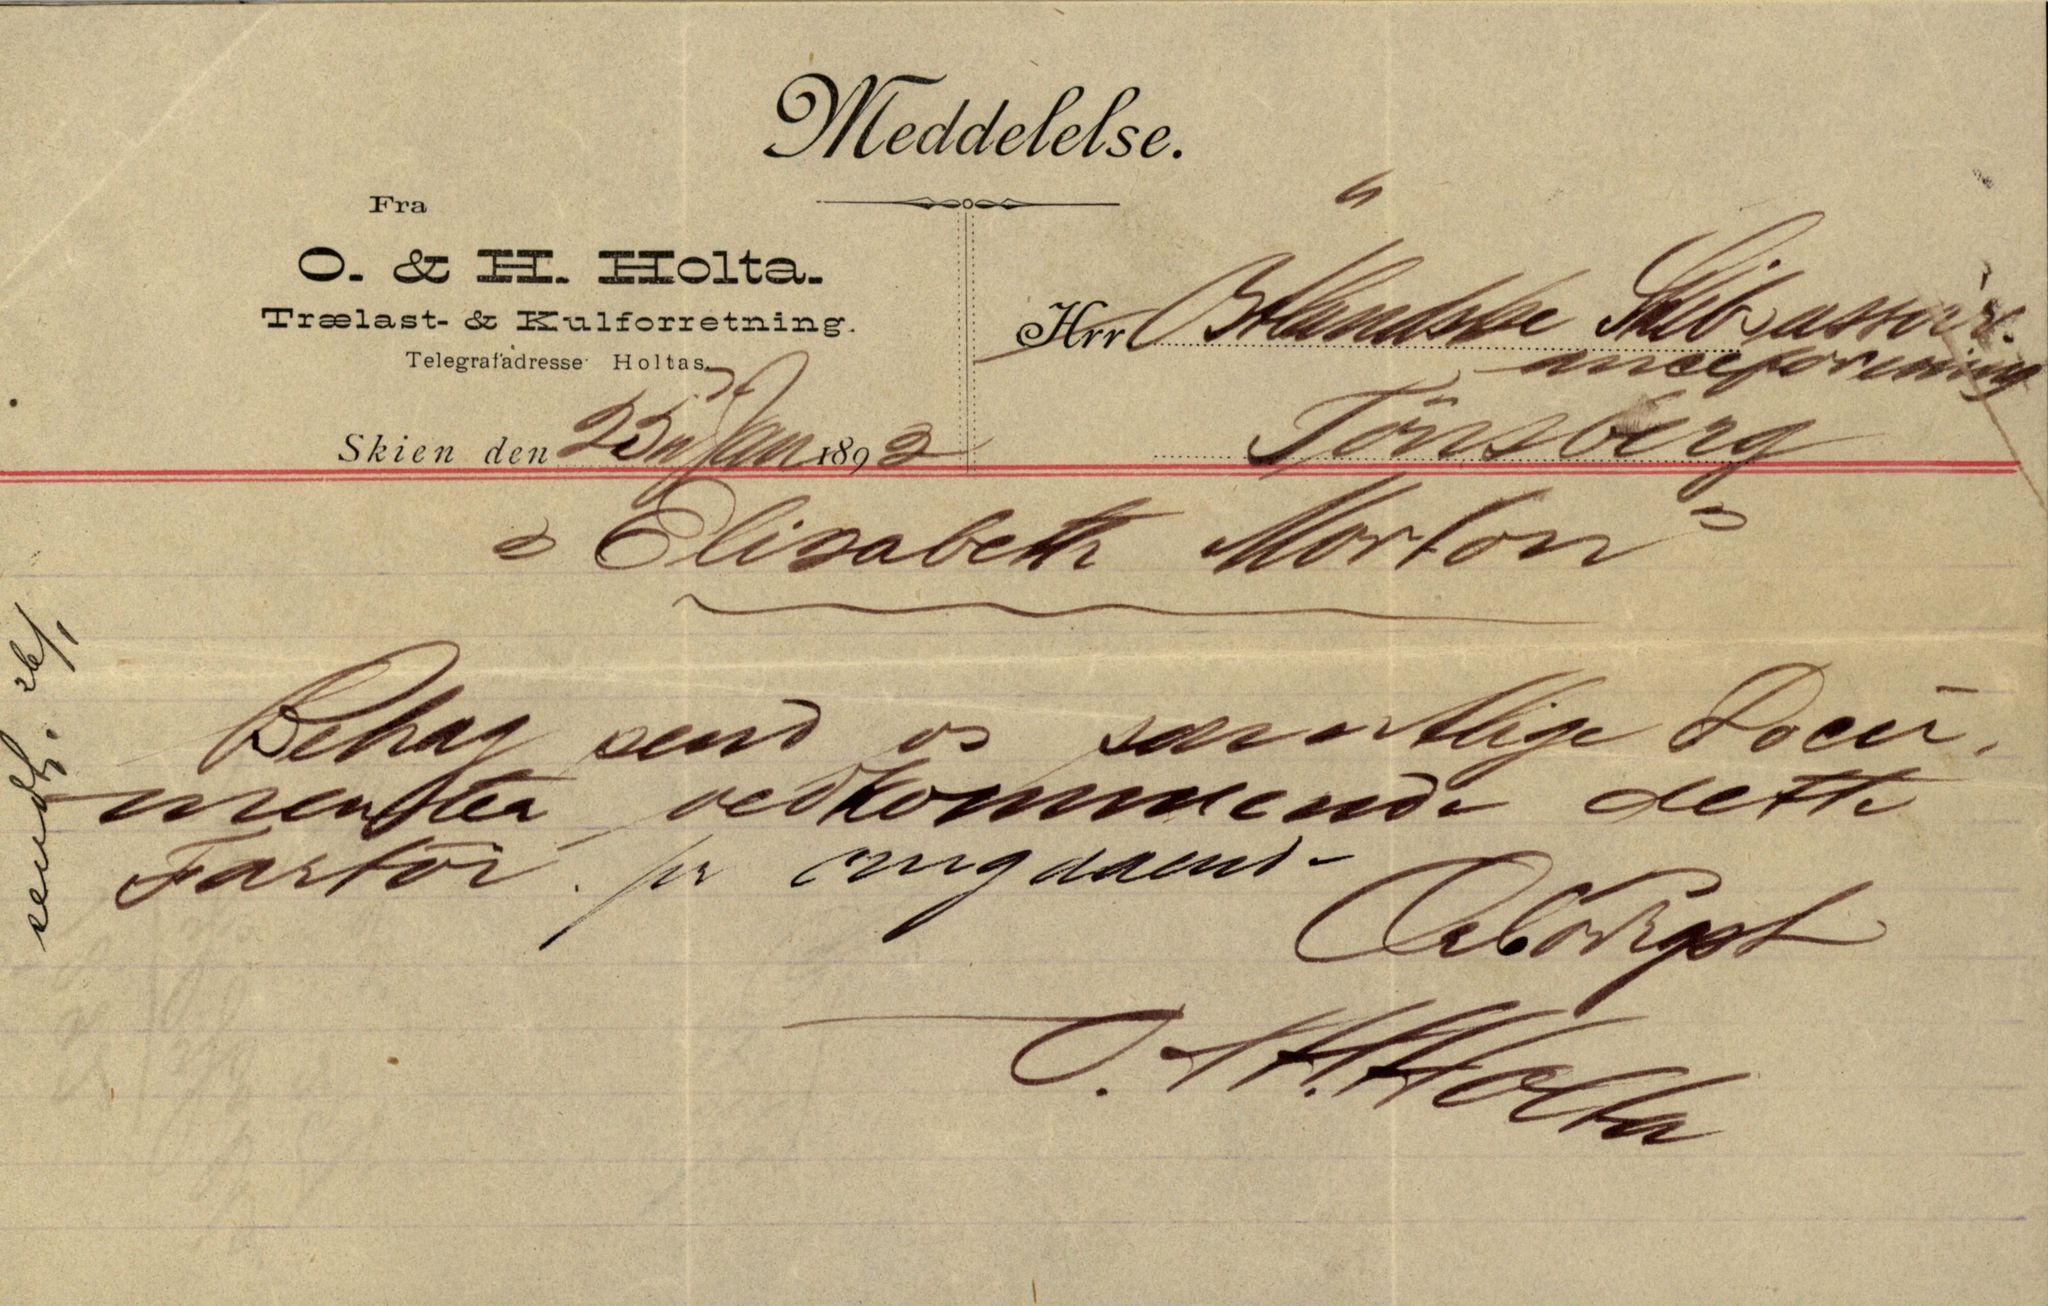 Meddelelse.
Fra
O. & H. Holta.
Trælast- & Kulforretning.
Telegrafadresse Holtas.
Skien den 25 Jan 1892
Hrr Østlandske Skibsassur-
anceforening
Tönsberg
"Elizabeth Morton"
Behag send os samtlige Docu-
menter vedkommende dette
Fartöi. pr omgaaende
Ærbödigst
O. & H. Holta
sendt. 26/1